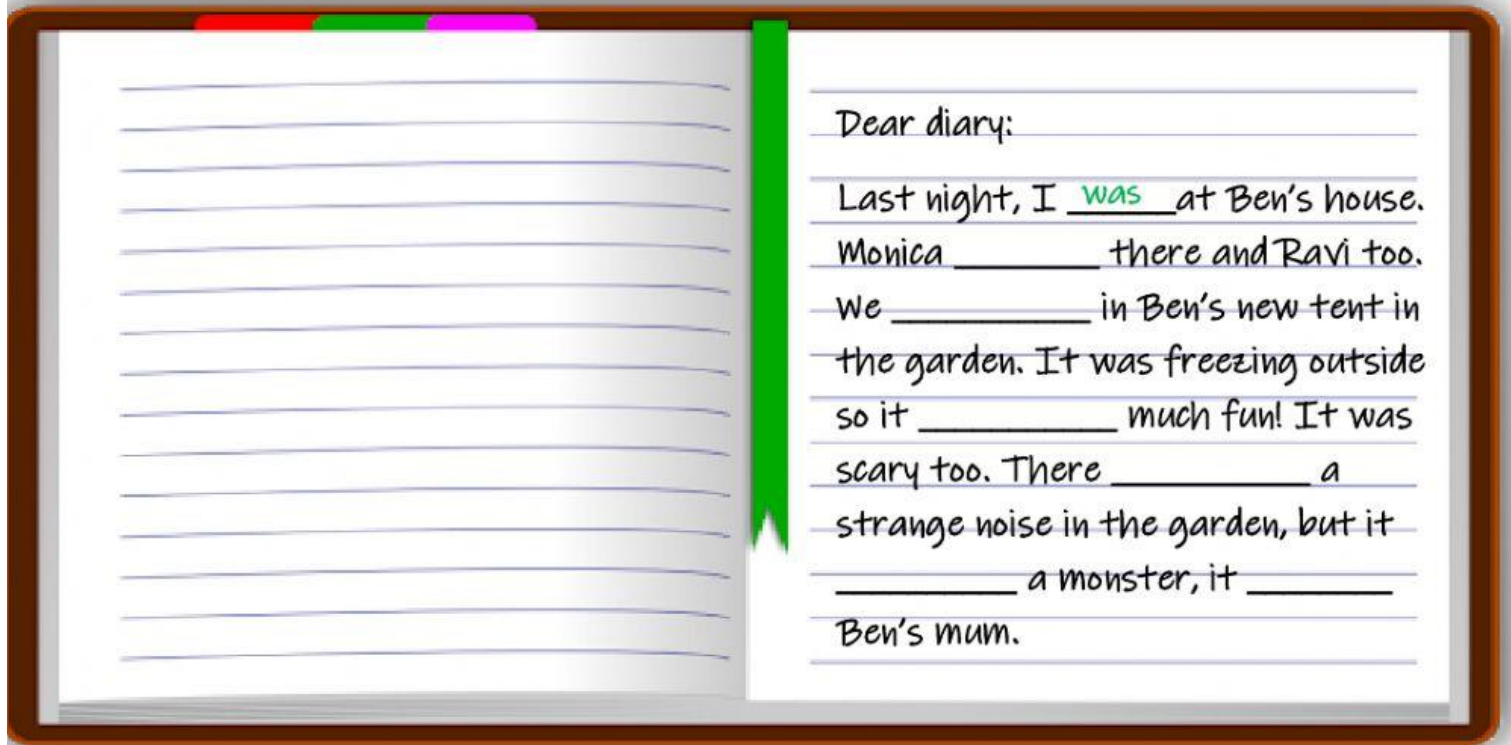 Dear diary:
Last night, I was at Ben's house.
Monica ________ there and Ravi too.
We ___________ in Ben's new tent in
the garden. It was freezing outside
so it ___________ much fun! It was
scary too. There ___________ a
strange noise in the garden, but it
__________ a monster, it ________
Ben's mum.